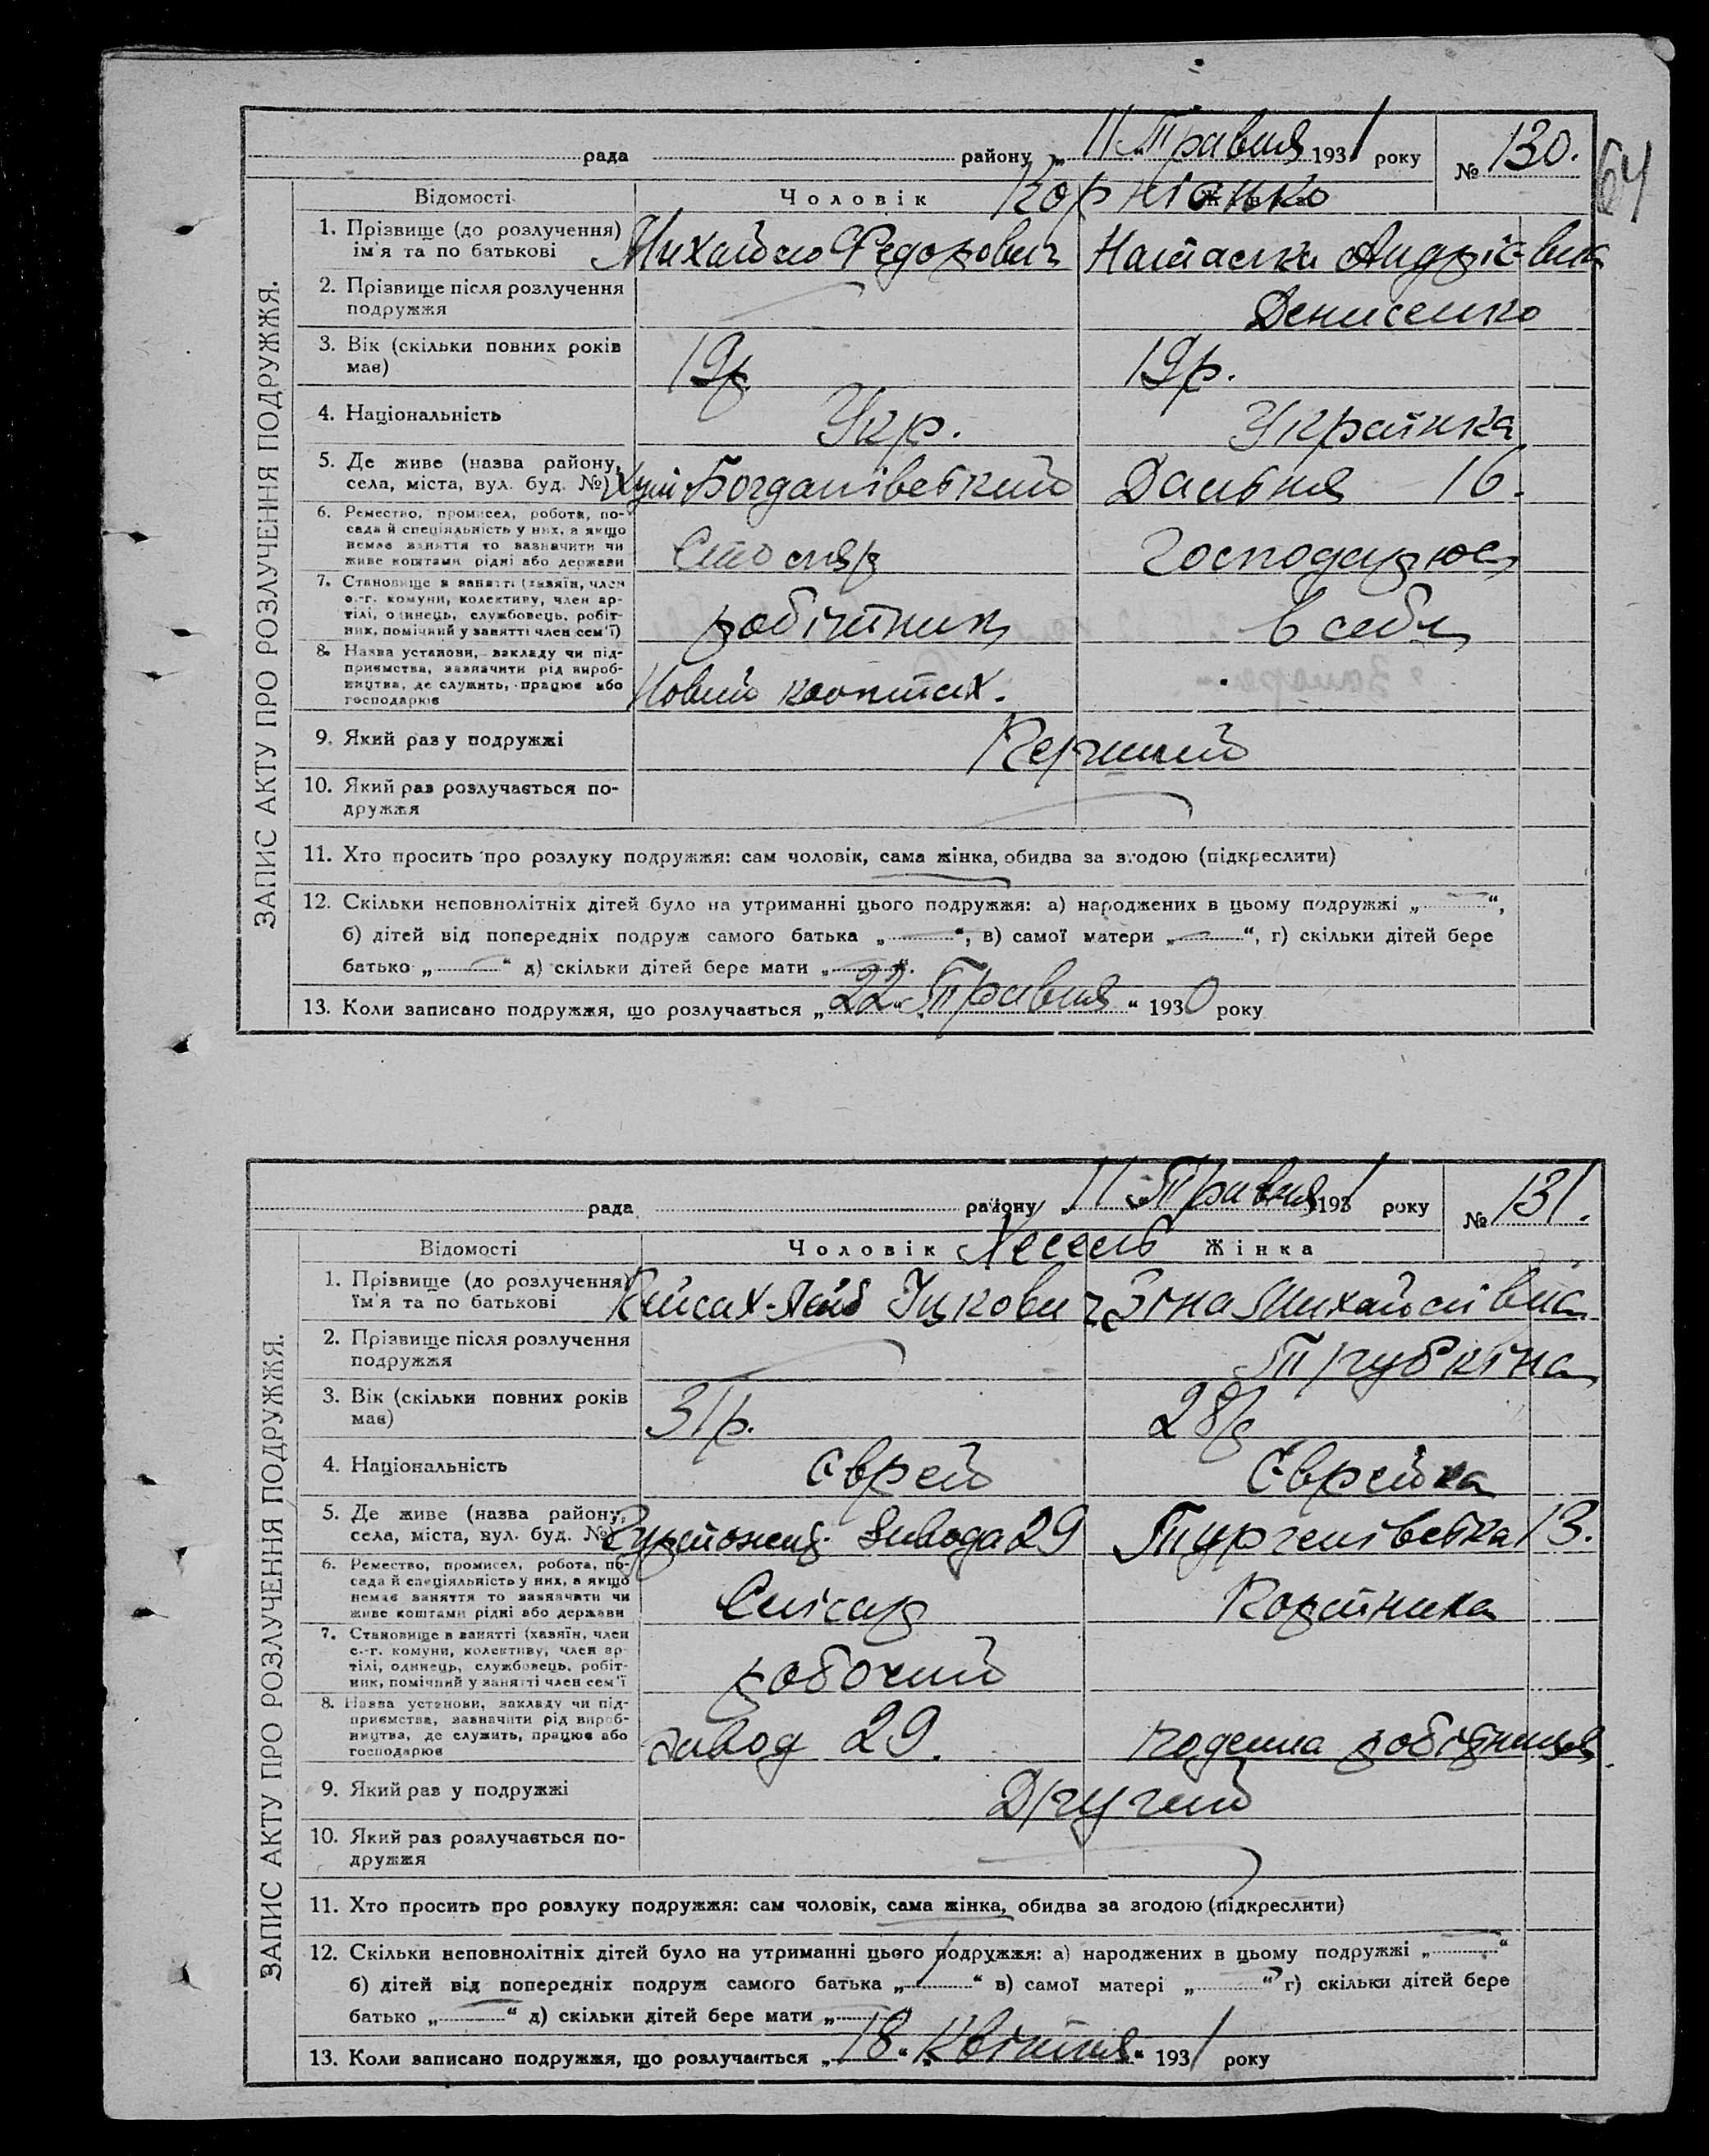 64
рада району „11“ Травня 1931 року № 130.
ЗАПИС АКТУ ПРО РОЗЛУЧЕННЯ ПОДРУЖЖЯ.
Відомості Чоловік Жінка
Корніенко
1. Прізвище (до розлучення) Михайло Федорович Наталка Андріївна
ім'я та по батькові
2. Прізвище після розлучення Денисенко
подружжя
3. Вік (скільки повних років 19р 19р.
має)
4. Національність Укр. Українка
5. Де живе (назва району, Богданівський Дальня 16.
села, міста, вул. буд. №)
6. Ремество, промисел, робота, по-
сада й спеціяльність у них, а якщо Столяр Господарює
немає заняття то зазначити чи
живе коштами рідні або держави
7. Становище в занятті (хазяїн, член
с.-г. комуни, колективу, член ар- робітник в себе
тілі, одинець, службовець, робіт-
ник, помічний у занятті член сем'ї)
8. Назва установи, закладу чи під-
приємства, зазначити рід вироб-
ництва, де служить, працює або Новий
господарює
9. Який раз у подружжі Перший
10. Який раз розлучається по-
дружжя
11. Хто просить про розлуку подружжя: сам чоловік, сама жінка, обидва за згодою (підкреслити)
12. Скільки неповнолітніх дітей було на утриманні цього подружжя: а) народжених в цьому подружжі „—“,
б) дітей від попередніх подруж самого батька „—“, в) самої матери „—“, г) скільки дітей бере
батько „—“ д) скільки дітей бере мати „—“.
13. Коли записано подружжя, що розлучається „22“ „Травня“ 1930 року
рада району „11“ Травня 1931 року № 131.
ЗАПИС АКТУ ПРО РОЗЛУЧЕННЯ ПОДРУЖЖЯ.
Відомості Чоловік Жінка
1. Прізвище (до розлучення) Пейсах-Лейб Іцкович Зіна Михайлівна
їм'я та по батькові
2. Прізвище після розлучення Трубкіна
подружжя
3. Вік (скільки повних років 31р. 28р
має)
4. Національність Єврей Єврейка
5. Де живе (назва району, Гуртожит. завода 29 Тургенівська 13.
села, міста, вул. буд. №)
6. Ремество, промисел, робота, по-
сада й спеціяльність у них, а якщо Слюсар
немає заняття то зазначати чи
живе коштами рідні або держави
7. Становище в занятті (хазяїн, член
с.-г. комуни, колективу, член ар-
тілі, одинець, службовець, робіт- робочий
ник, помічний у занятті член сем'ї
8. Назва установи, закладу чи під-
приємства, зазначити рід вироб-
ництва, де служить, працює або завод 29. робітниця.
господарює
9. Який раз у подружжі Другий
10. Який раз розлучається по-
дружжя
11. Хто просить про розлуку подружжя: сам чоловік, сама жінка, обидва за згодою (підкреслити)
12. Скільки неповнолітніх дітей було на утриманні цього подружжя: а) народжених в цьому подружжі „—“
б) дітей від попередніх подруж самого батька „1“ в) самої матері „—“ г) скільки дітей бере
батько „—“ д) скільки дітей бере мати „—
13. Коли записано подружжя, що розлучається „18“ „Квітня“ 1931 року